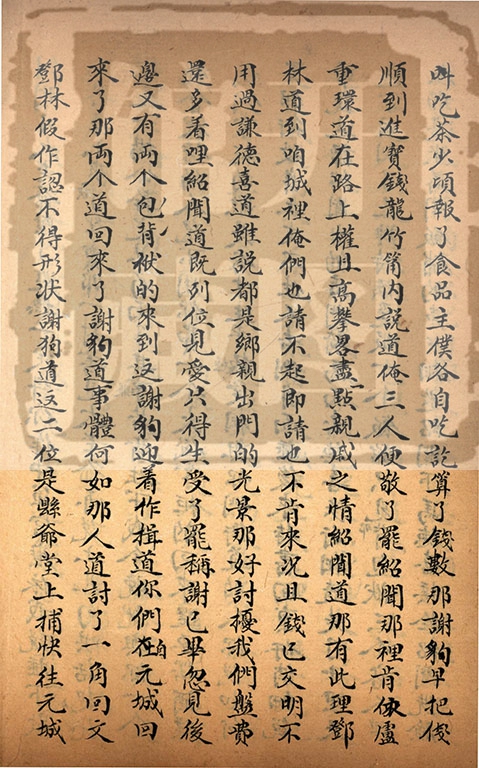 叫吃茶少頃報了食品主僕各自吃訖筭了錢數那謝豹早把錢
順到進寶錢龍竹筩內説道俺三人便敬了罷紹聞那裡肯依盧
重環道在路上權且高攀畧盡一點親戚之情紹聞道那有此理鄧
林道到咱城裡俺們也請不起即請也不肯來况且錢已交明不
用過謙德喜道雖説都是鄉親出門的光景那好討擾我們盤費
還多着哩紹聞道既列位見愛只得生受了罷稱謝已畢忽見後
邊又有兩个包背袱的來到這謝豹迎着作揖道你們自在元城回
來了那両个道回來了謝豹道事體何如那人道討了一角回文
鄧林假作認不得形状謝豹道這二位是縣爺堂上捕快往元城